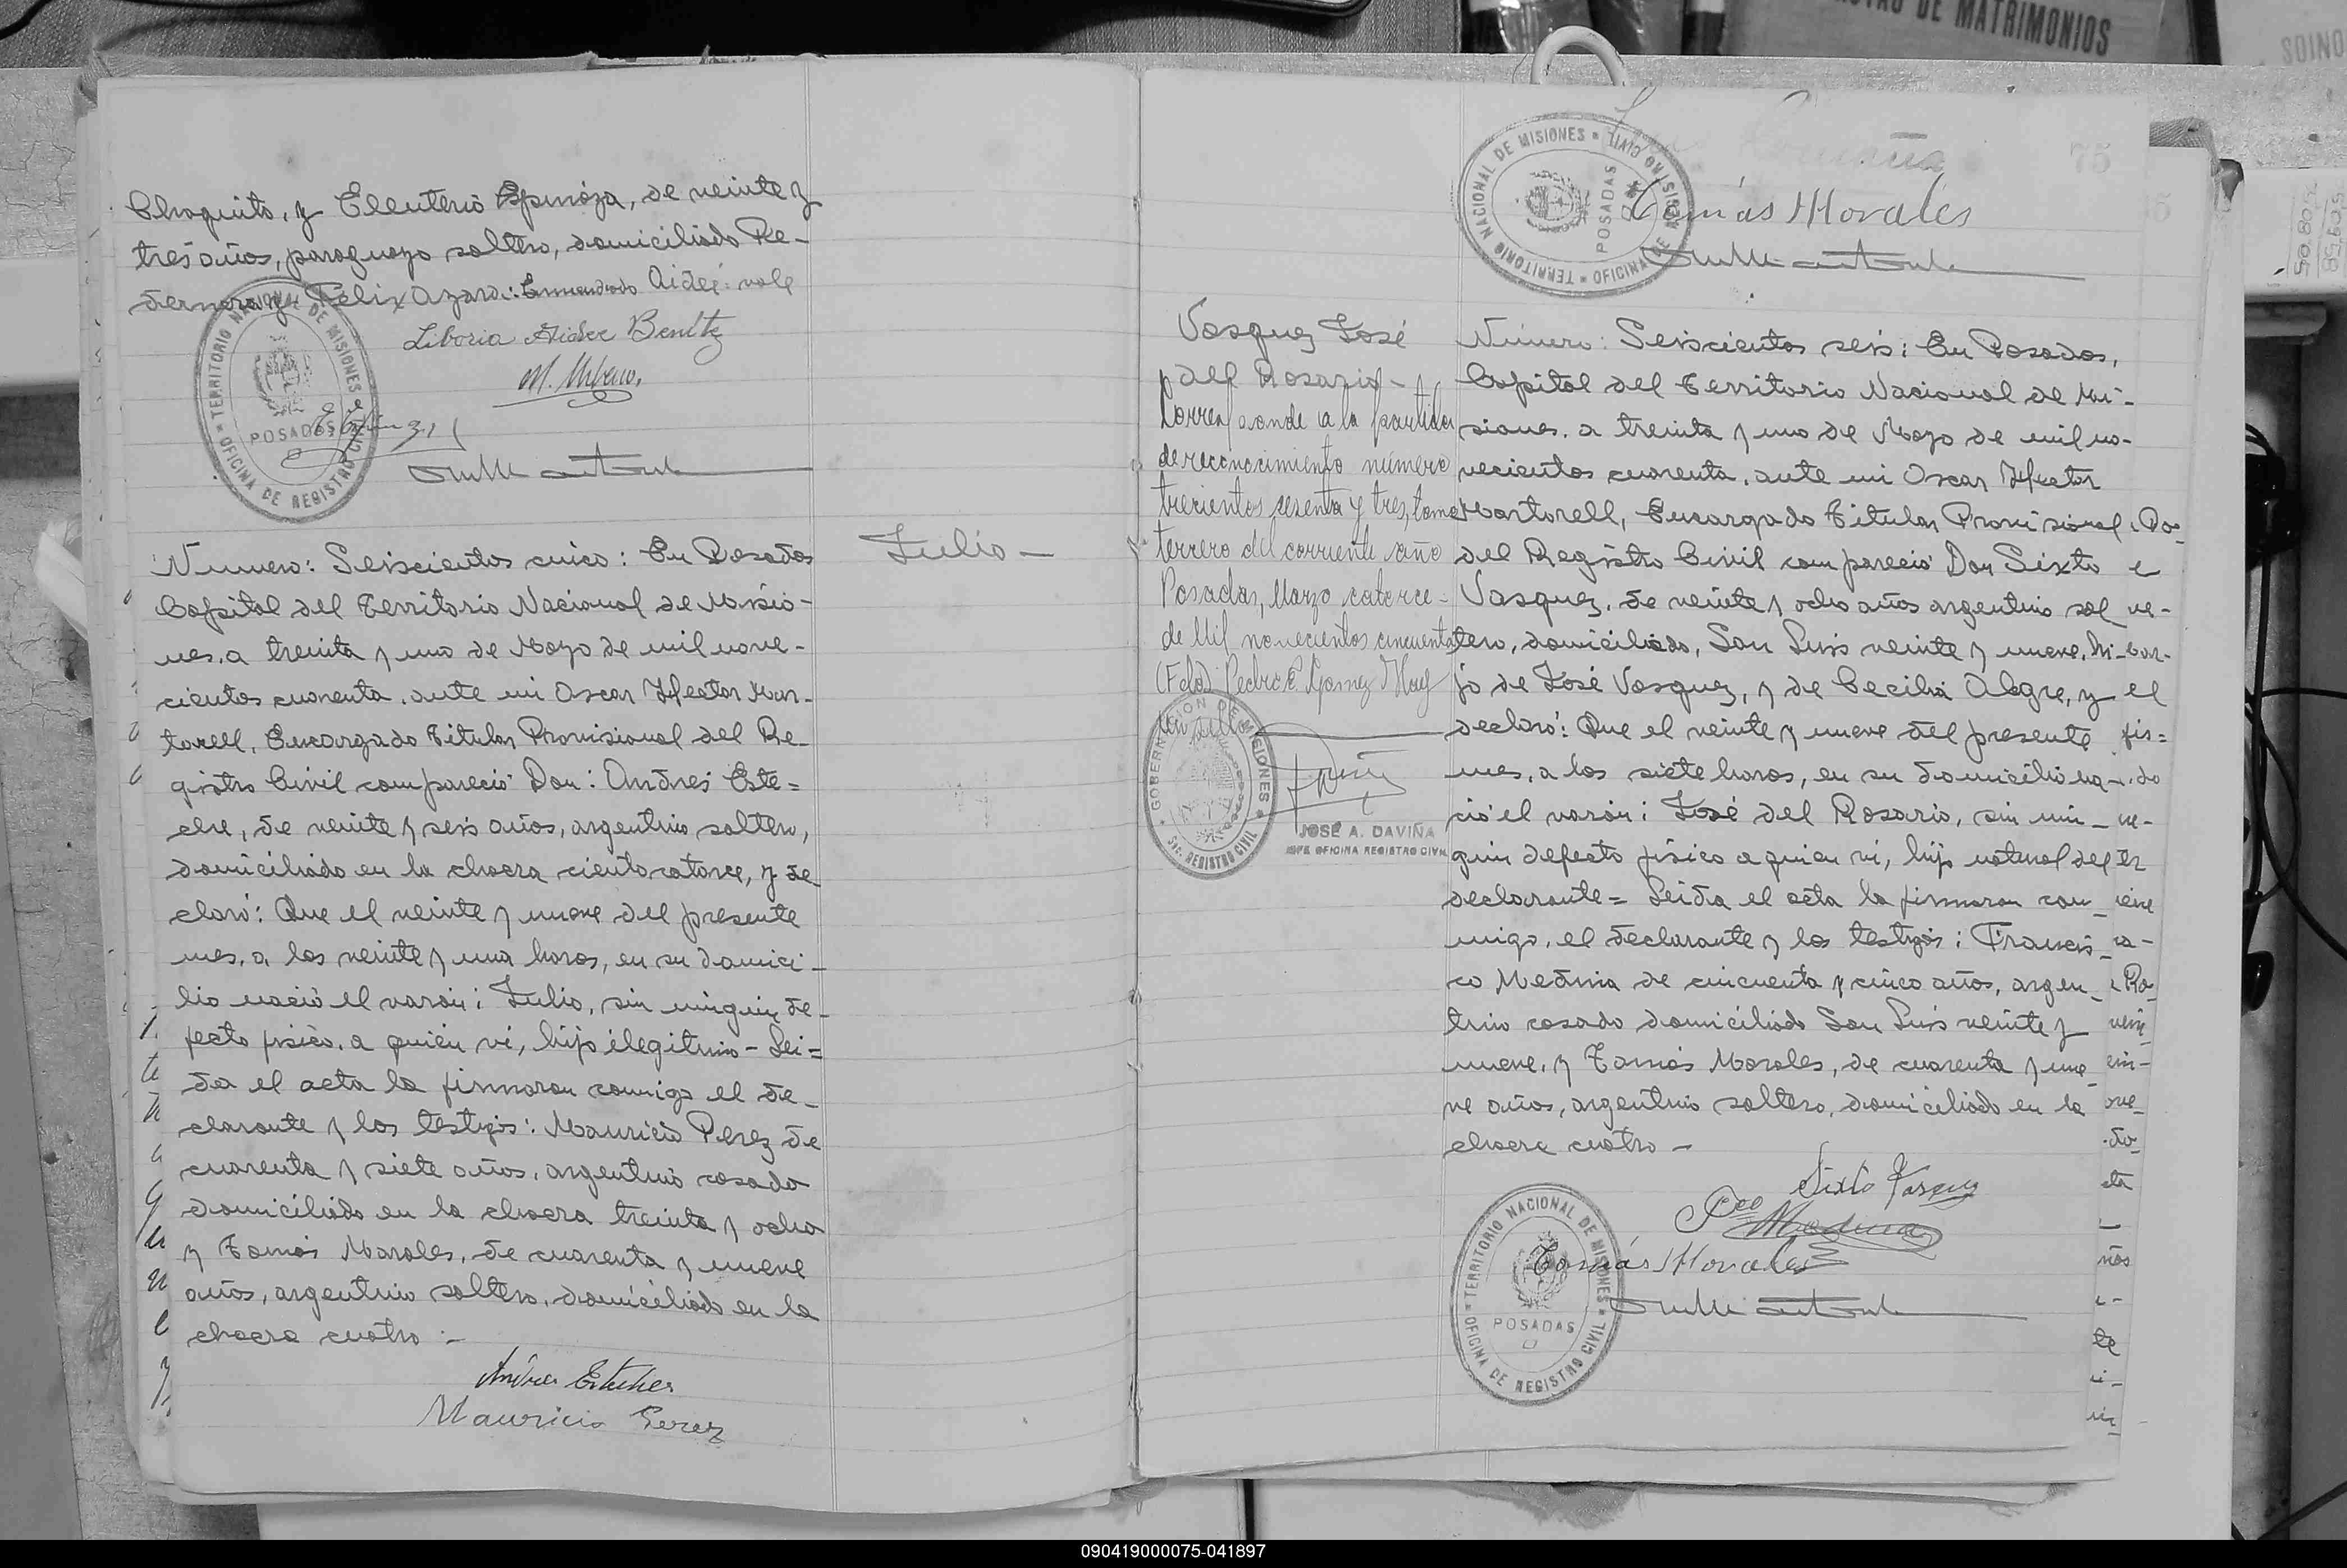 Chaquito, y Eleuterio Espinóza, de veinte y
tres años, paraguayo soltero, domiciliado Re-
dernera y Felix Azara: Enmendado Aidée: vale
Liboria Aidee Benitez
TERRITORIO NACIONAL DE MISIONES
POSADAS
OFICINA DE REGISTRO CIVIL
Número: Seiscientos cinco: En Posadas
Capital del Territorio Nacional de Misio-
nes, a treinta y uno de Mayo de mil nove-
cientos cuarenta, ante mi Oscar Hector Mar-
torell, Encargado Titular Provisional del Re-
gistro Civil compareció Don: Andrés Este-
che, de veinte y seis años, argentino soltero,
domiciliado en la chacra ciento catorce, y de
claró: Que el veinte y nueve del presente
mes, a las veinte y una horas, en su domici-
lio nació el varón: Julio, sin ningún de-
fecto fisico, a quién ví, hijo ilegitimo - Lei=
da el acta la firmaron conmigo el de-
clarante y los testigos: Mauricio Perez de
cuarenta y siete años, argentino casado
domiciliado en la chacra treinta y ocho
y Tomás Morales, de cuarenta y nueve
años, argentino soltero, domiciliado en la
chacra cuatro :-
Andres Esteche
Mauricio Perez
Julio -
75
TERRITORIO NACIONAL DE MISIONES
POSADAS
OFICINA DE REGISTRO CIVIL
Tomás Morales
Vasquez José
del Rosario -
Corresponde a la partida
de reconocimiento número
trecientos sesenta y tres, tomo
terrero del corriente año
Posadas, Marzo catorce -
de Mil novecientos cincuenta
(Fdo) Pedro E. Gomez
Un sello
GOBERNACION DE MISIONES
SEC. REGISTRO CIVIL
JOSÉ A. DAVIÑA
JEFE OFICINA REGISTRO CIVIL
Número: Seiscientos seis: En Posadas,
Capital del Territorio Nacional de Mi-
siones, a treinta y uno de Mayo de mil no-
vecientos cuarenta, ante mi Oscar Hector
Martorell, Encargado Titular Provisional
del Registro Civil compareció Don Sixto
Vasquez, de veinte y ocho años argentino sol
tero, domiciliado, San Luis veinte y nueve, hi-
jo de José Vasquez, y de Cecilia Alegre, y
declaró: Que el veinte y nueve del presente
mes, a las siete horas, en su domicilio na-
ció el varón: José del Rosario, sin nin-
gun defecto fisico a quien ví, hijo natural del
declarante = Leida el acta la firmaron con-
migo, el declarante y los testigos: Francis-
co Medina de cincuenta y cinco años, argen-
tino casado domiciliado San Luis veinte y
nueve, y Tomás Morales, de cuarenta y nue-
ve años, argentino soltero, domiciliado en la
chacra cuatro -
Sixto Vasquez
Fco Medina
Tomás Morales
TERRITORIO NACIONAL DE MISIONES
POSADAS
OFICINA DE REGISTRO CIVIL
DE MATRIMONIOS
090419000075-041897